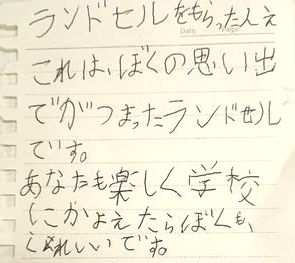 ランドセルをもらった人え
Date Page
これは、ぼくの思い出
でがつまったランドセル
です。
あなたも楽しく学校
にかよえたらぼくも、
うれしいです。